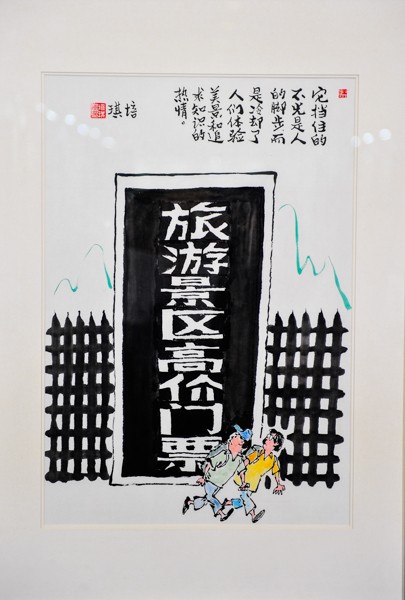 它挡住的
不光是人
的脚步而
是冷却了
人们体验
美景和追
求知识的
热情。
培琪
旅游景区高价门票